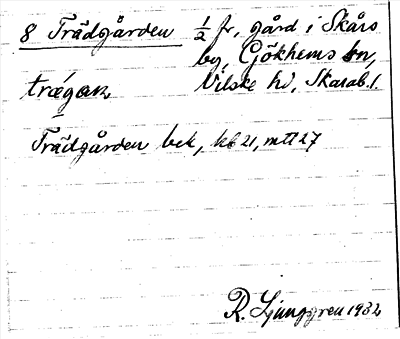 8 Trädgården ½ fr, gård i Skårs
by, Gökhems sn,
trǽgaṇ Vilske hd, Skarab. l.
Trädgården bek, kb 21, mtl 27
R. Ljunggren 1932